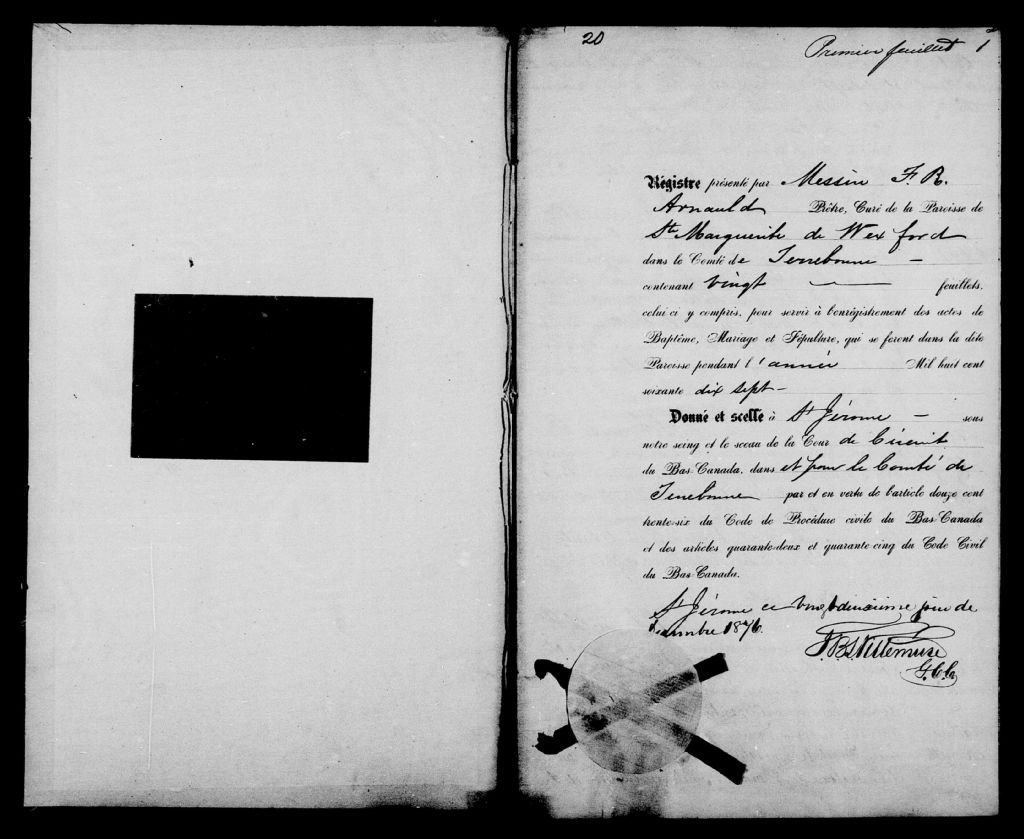 20
Premier feuillet 1
Régistre présenté par Messire F. R.
Arnauld Prêtre, Curé de la Paroisse de
Ste Marguerite de Wexford
dans le Comté de Terrebonne –
contenant vingt — feuillets,
celui-ci y compris, pour servir à l'enrégistrement des actes de
Baptême, Mariage et Sépulture, qui se feront dans la dite
Paroisse pendant l'année Mil huit cent
soixante dix sept –
Donné et scellé à St Jérôme – sous
notre seing et le sceau de la Cour de Circuit
du Bas-Canada, dans et pour le Comté de
Terrebonne par et en vertu de l'article douze cent
trente-six du Code de Procédure civile du Bas-Canada
et des articles quarante-deux et quarante-cinq du Code Civil
du Bas-Canada.
St Jérôme ce vingtdeuxième jour de
decembre 1876.
G.C.C.